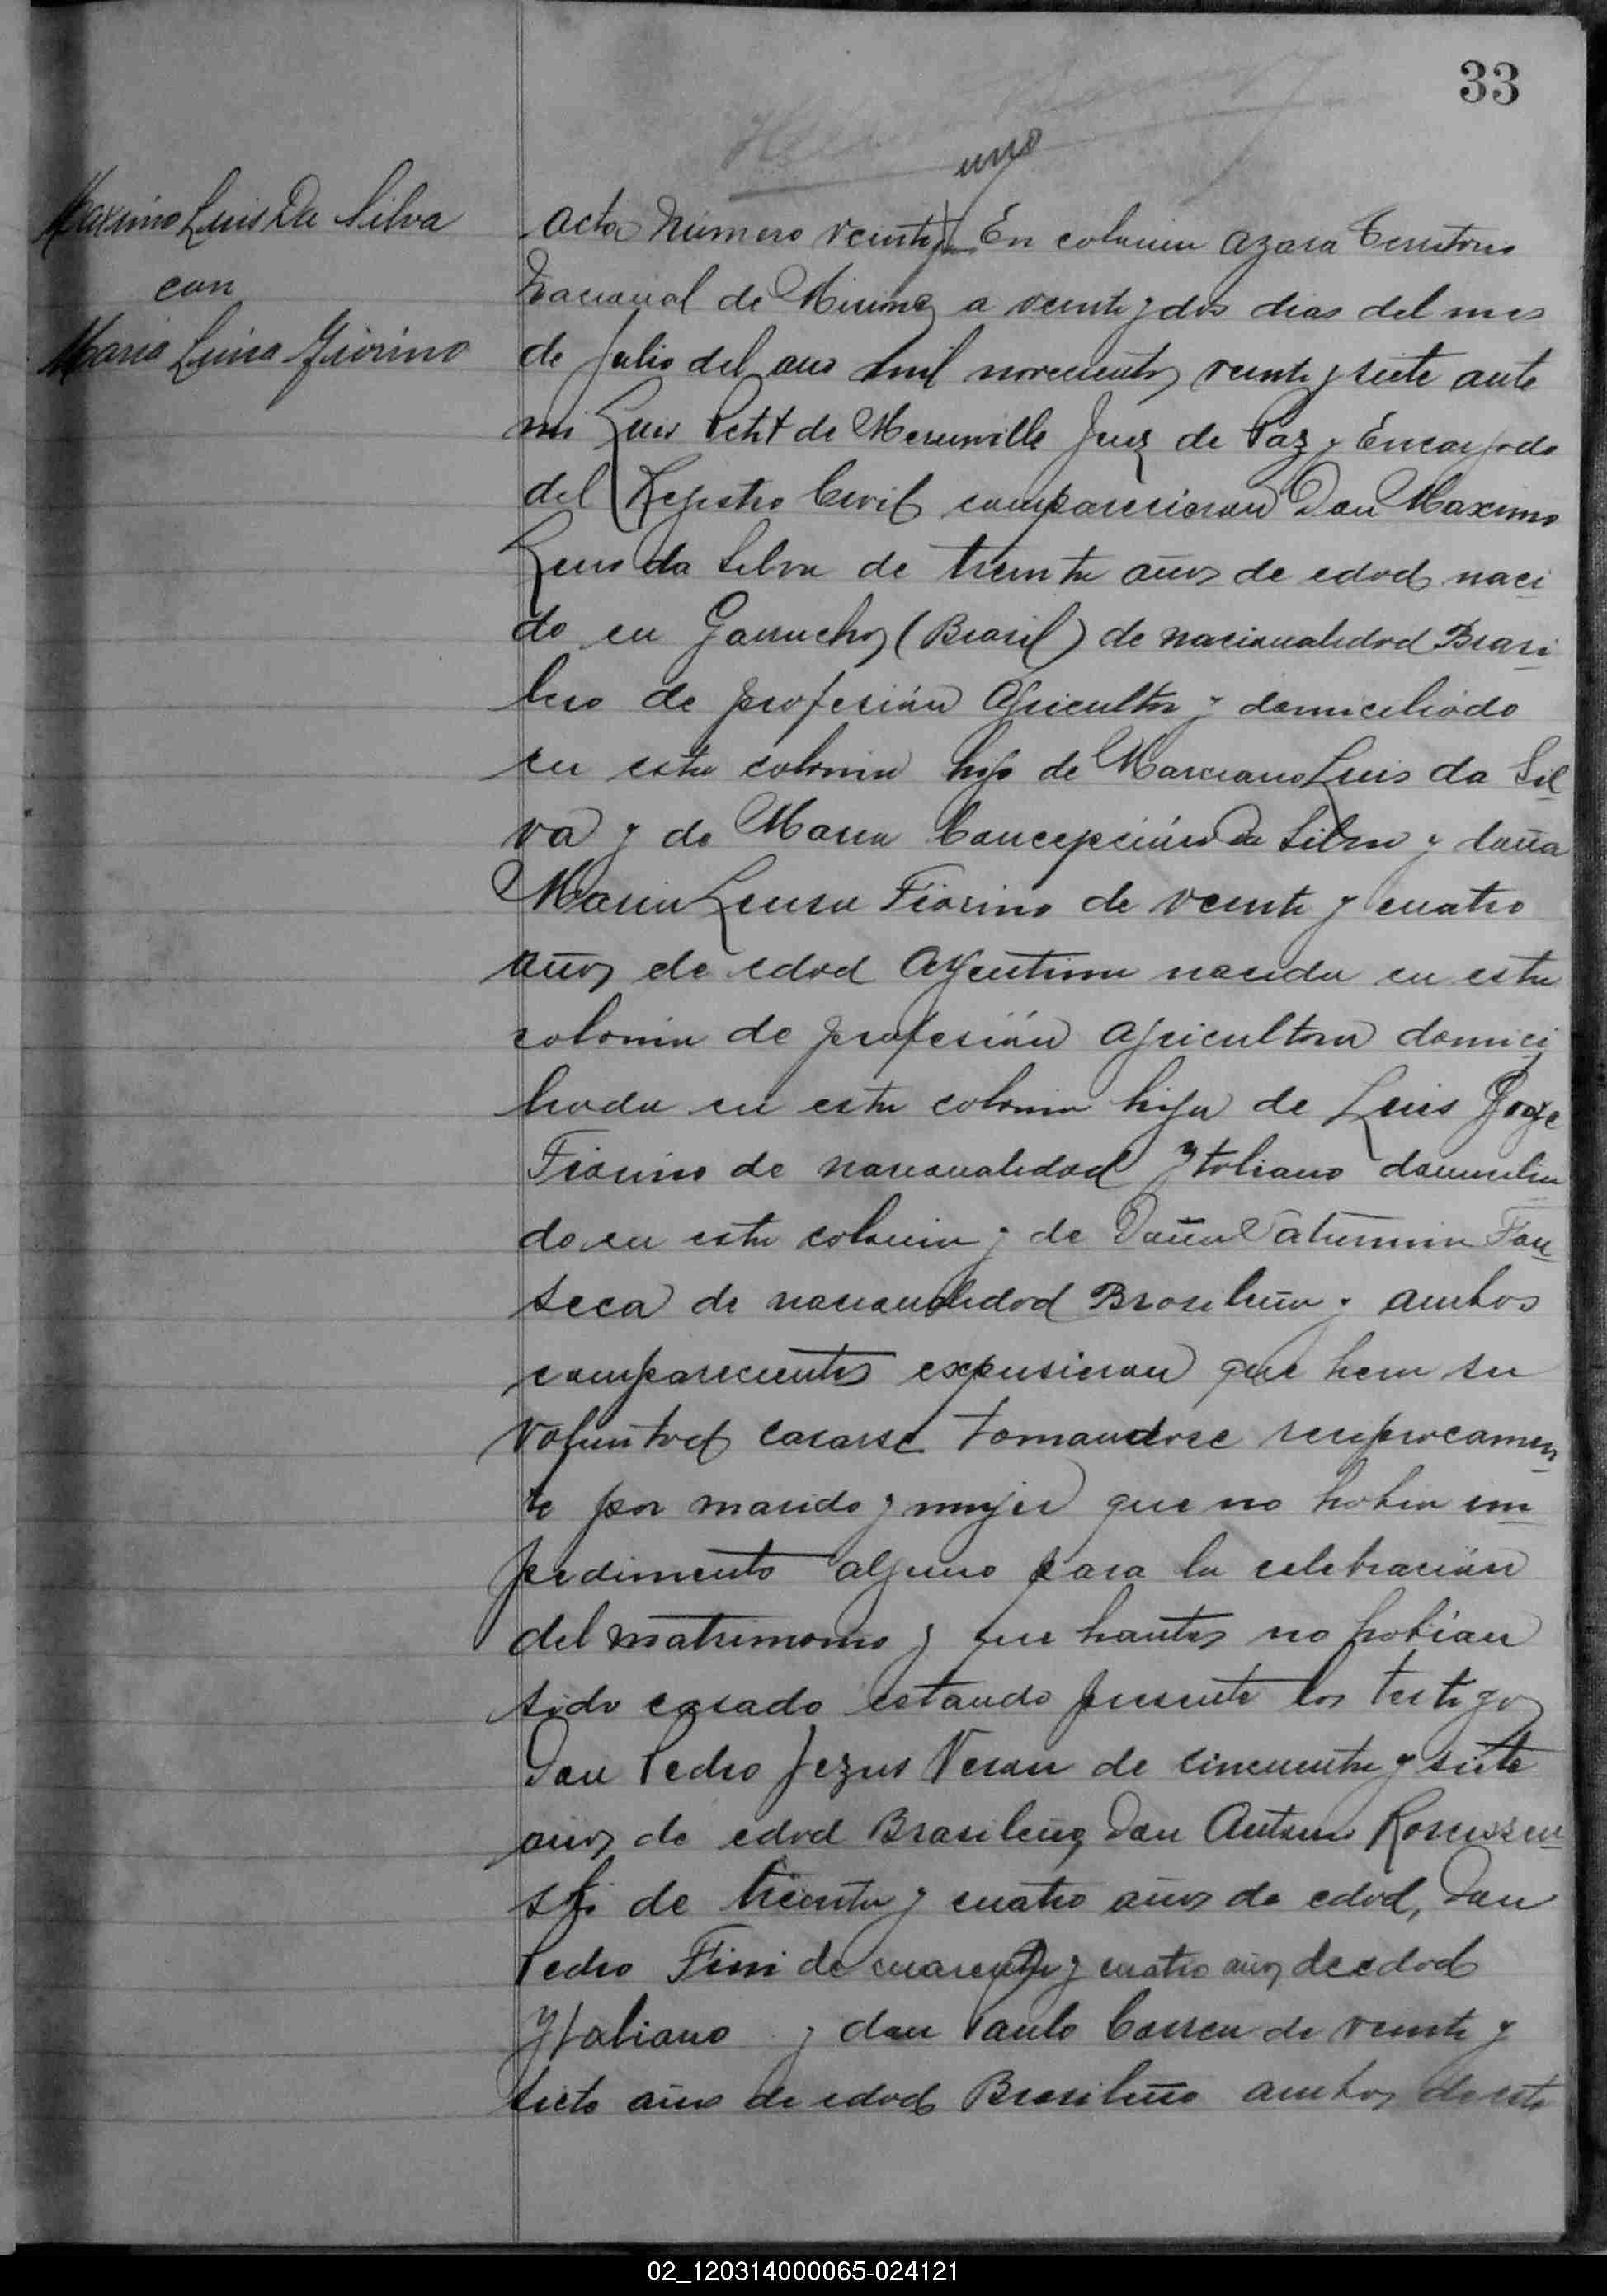 33
uno
Maximo Luis Da Silva
con
Maria Luisa Fiorino
Acta Número veinte y En colonia Azara Territorio
Nacional de Misiones a veinte y dos dias del mes
de Julio del año mil novecientos veinte y siete ante
mi Luis Petit de Meurville Juez de Paz y Encargado
del Registro Civil comparecieron Don Maximo
Luis da Silva de treinta años de edad naci
do en Garruchos (Brasil) de nacionalidad Brasi
lero de profesión Agricultor y domiciliado
en esta colonia hijo de Marciano Luis da Sil
va y de Maria Concepción Da Silva y doña
Maria Luisa Fiorino de veinte y cuatro
años de edad Argentina nacida en esta
colonia de profesión agricultora domici
liada en esta colonia hija de Luis Jorge
Fiorino de nacionalidad Ytaliano domicilia
do en esta colonia y de Doña Saturnina Fon
seca de nacionalidad Brasileña y ambos
comparecientes expusieron que hera su
voluntad casarse tomandose reciprocamen
te por marido y mujer que no habia im
pedimento alguno para la celebración
del matrimonio y que hantes no habian
sido casado estando presente los testigos
Don Pedro Jezus Veran de cincuenta y siete
años de edad Brasileño, Don Antonio
ski de treinta y cuatro años de edad, Don
Pedro Fini de cuarenta y cuatro años de edad
Ytaliano y don Paulo Correa de veinte y
siete años de edad Brasileño ambos de esta
02_120314000065-024121